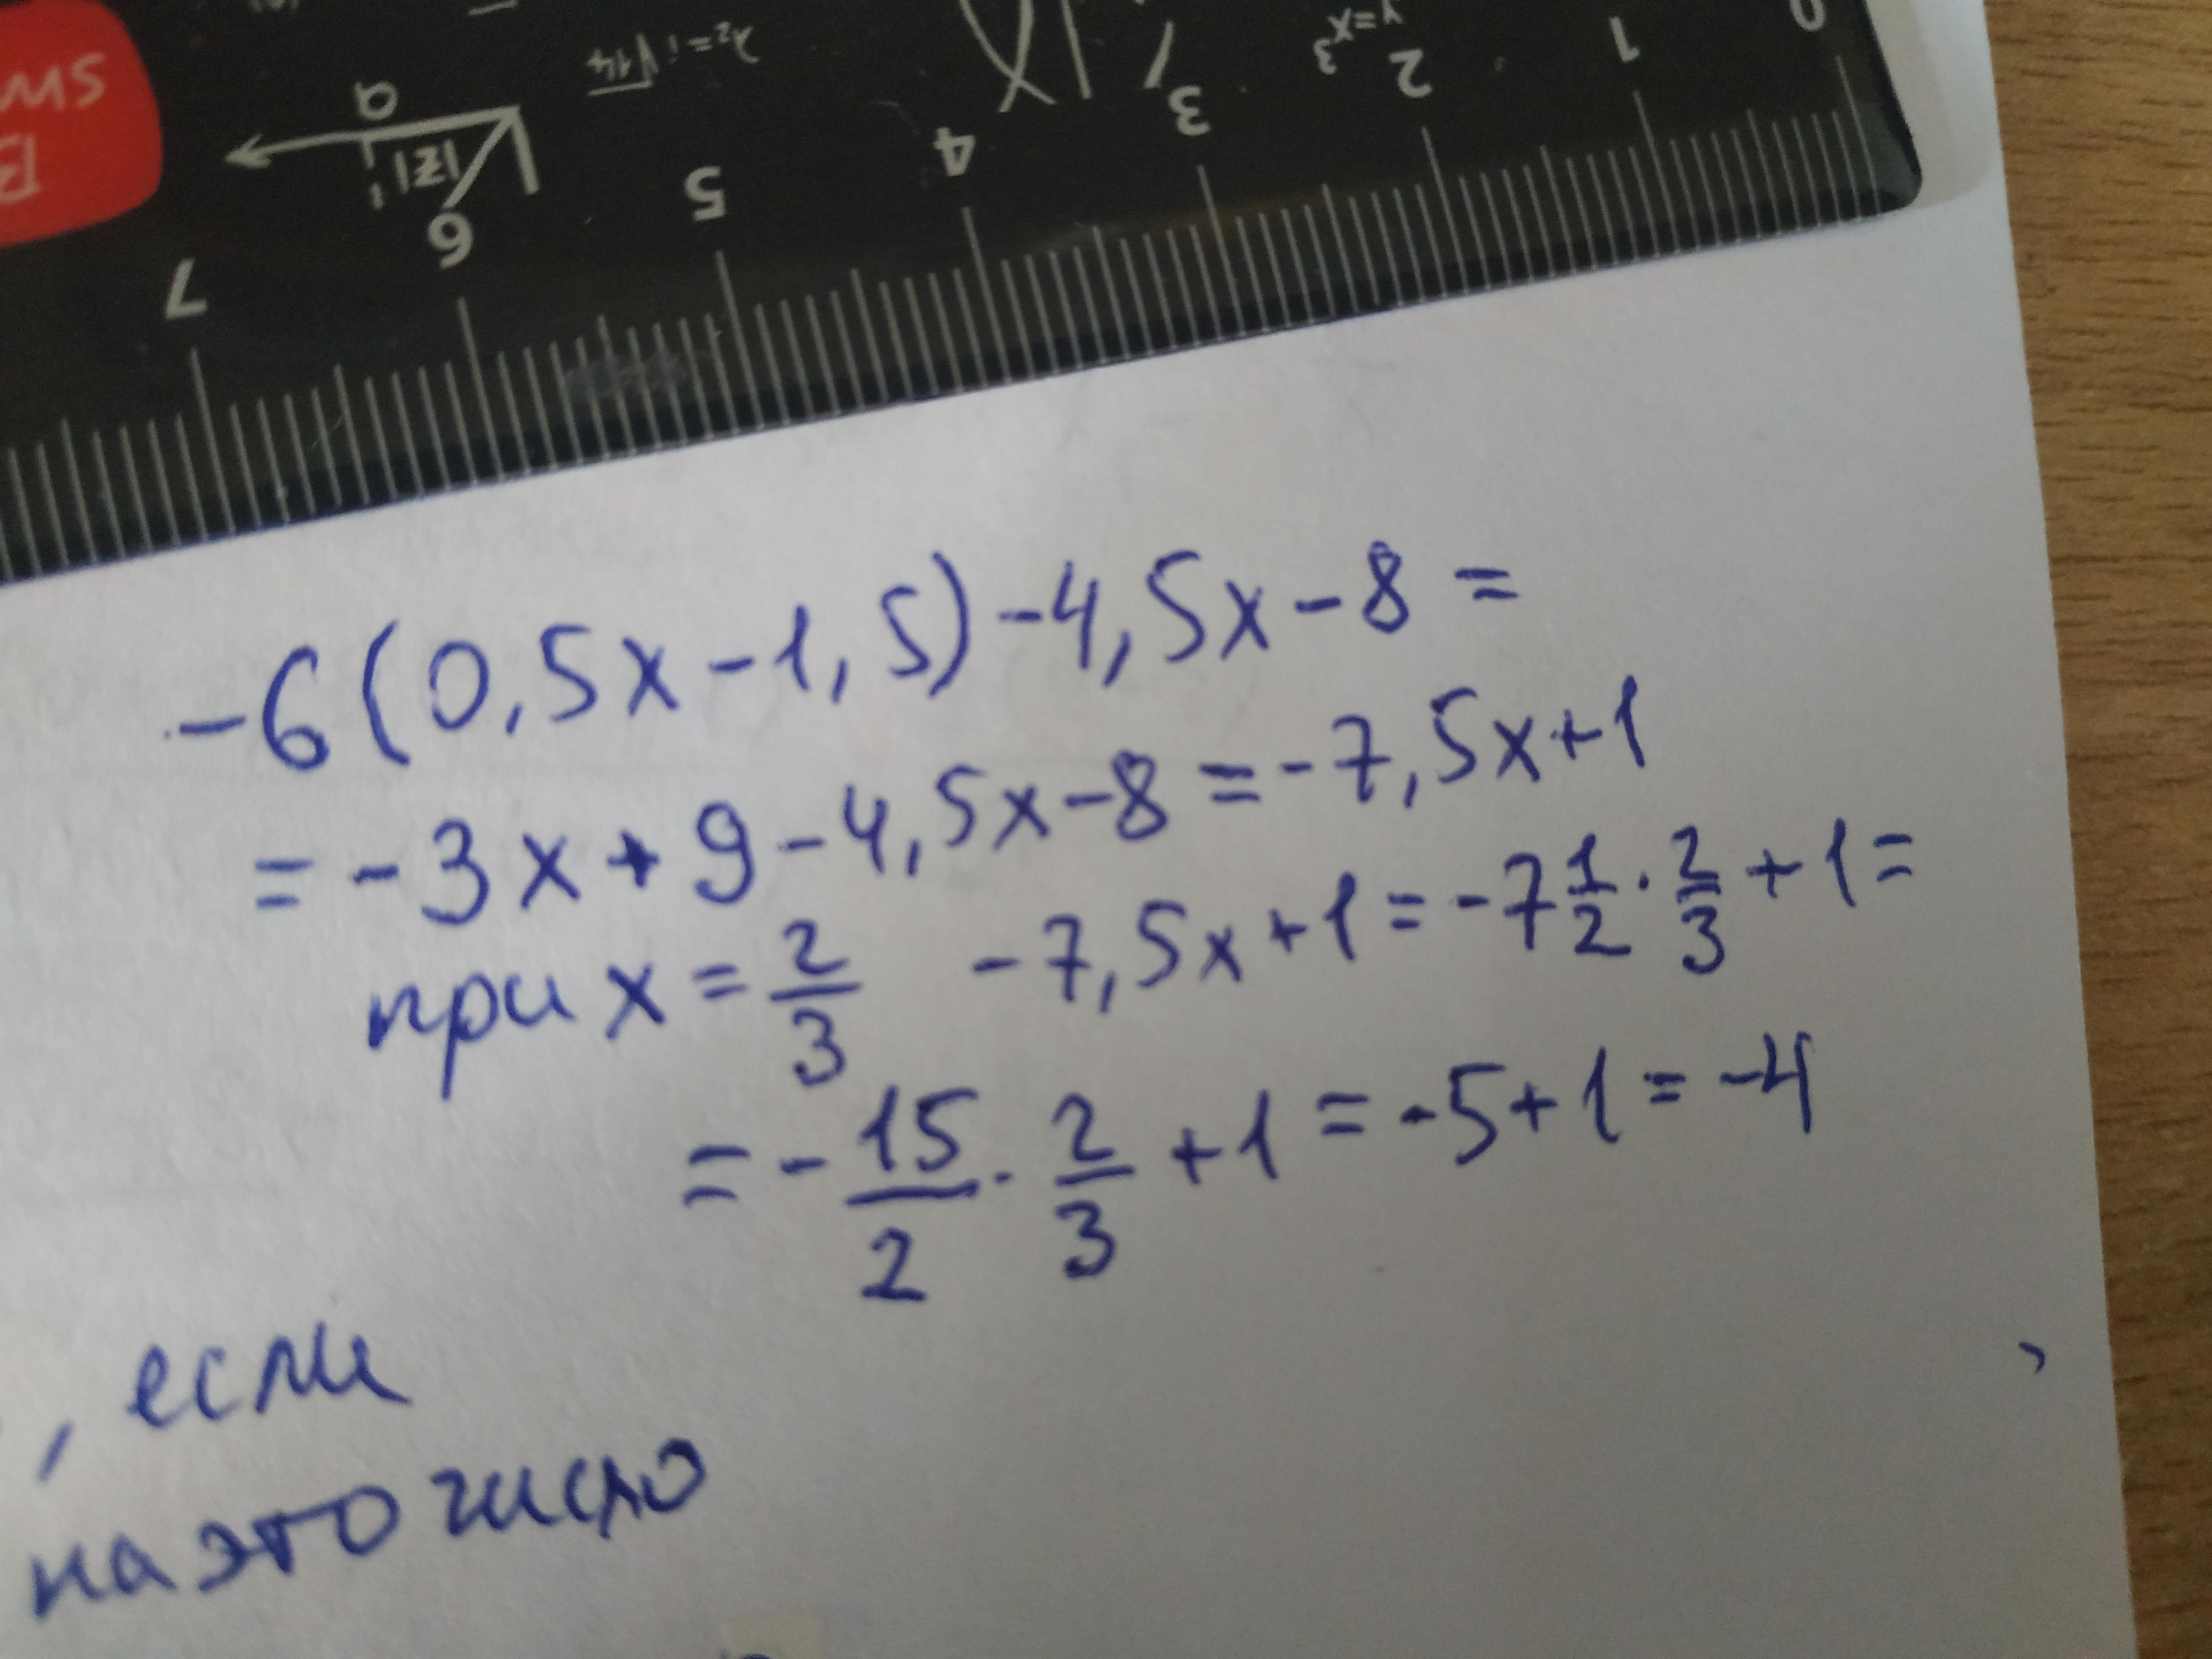 0 1 2 3 4 5 6 7
y=x³
λ²=i√14
a
|z|
-6(0,5x-1,5)-4,5x-8=
=-3x+9-4,5x-8=-7,5x+1
при x=2/3 -7,5x+1=-7 1/2·2/3+1=
=-15/2·2/3+1=-5+1=-4
, если
на это число